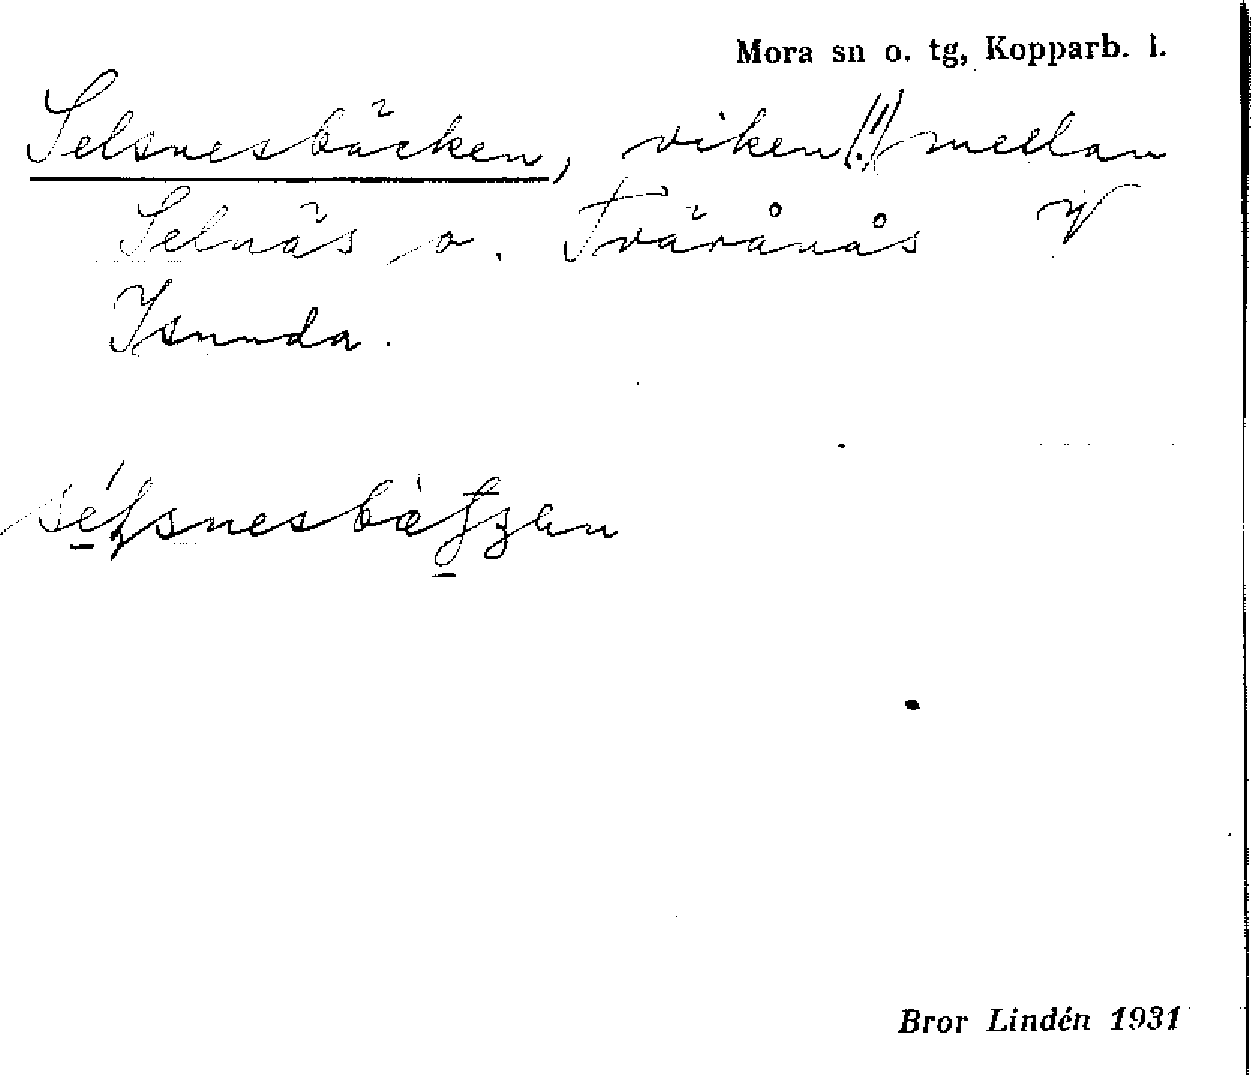 Mora sn o. tg, Kopparb. l.
Selsnesbäcken, viken (!) mellan
Selnäs o. Tvärånås
Isunda.
Bror Lindén 1931